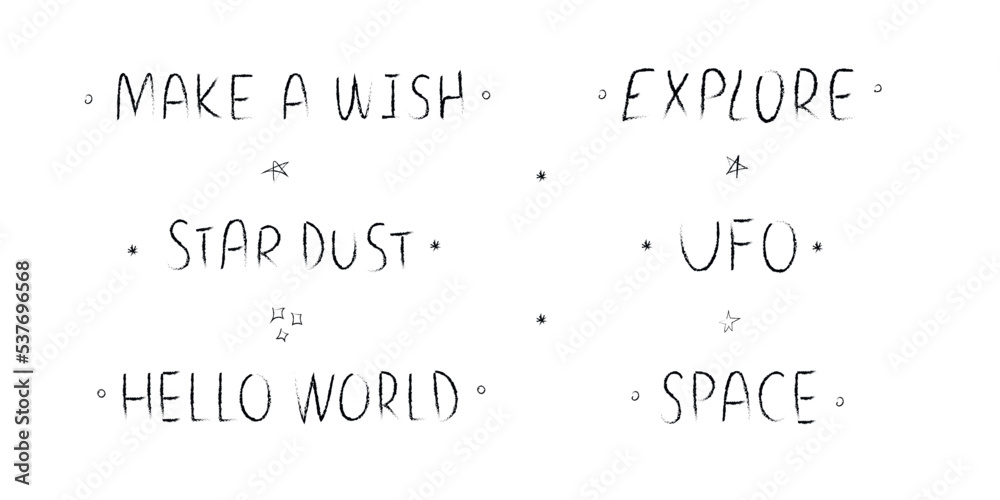 MAKE A WISH
EXPLORE
STAR DUST
UFO
HELLO WORLD
SPACE
Adobe Stock | #537696568